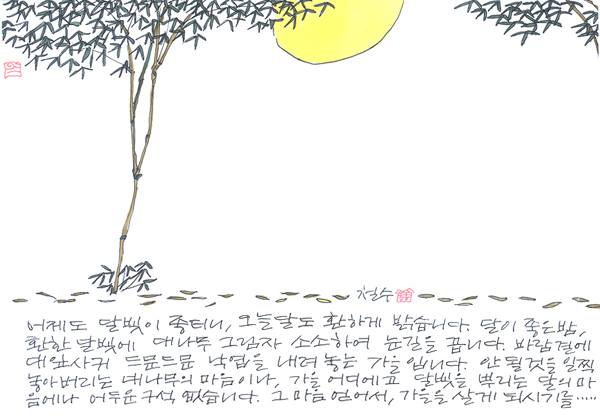 철수
어제도 달빛이 좋더니, 오늘달도 환하게 밝습니다. 달이 좋은밤,
환한 달빛에 대나무 그림자 소소하여 눈길을 끕니다. 바람결에
대잎사귀 드문드문 낙엽을 내려 놓는 가을입니다. 안될것을 일찍
놓아버리는 대나무의 마음이나, 가을 어디에고 달빛을 뿌리는 달의 마
음에나 어두운 구석 없습니다. 그 마음 얻어서, 가을을 살게 되시기를.....